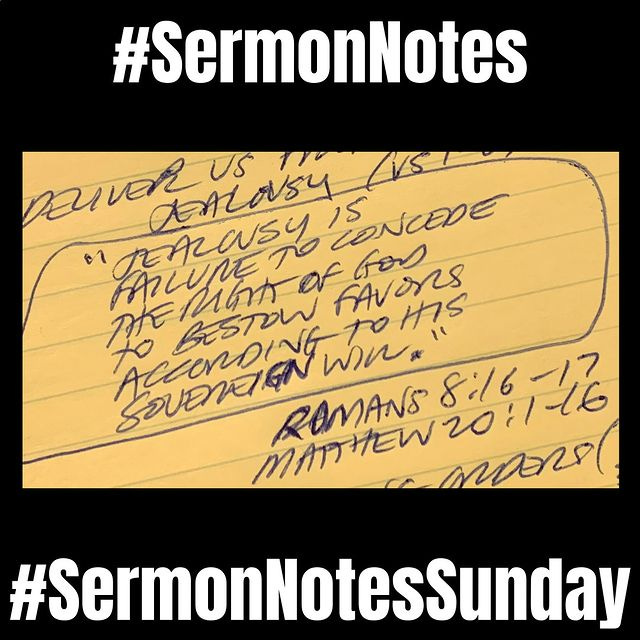 #SermonNotes
DELIVER US
JEALOUSY (VS 1-
"JEALOUSY IS
FAILURE TO CONCEDE
THE RIGHT OF GOD
TO BESTOW FAVORS
ACCORDING TO HIS
SOVEREIGN WILL."
ROMANS 8:16-17
MATTHEW 20:1-16
ORDERS (
#SermonNotesSunday